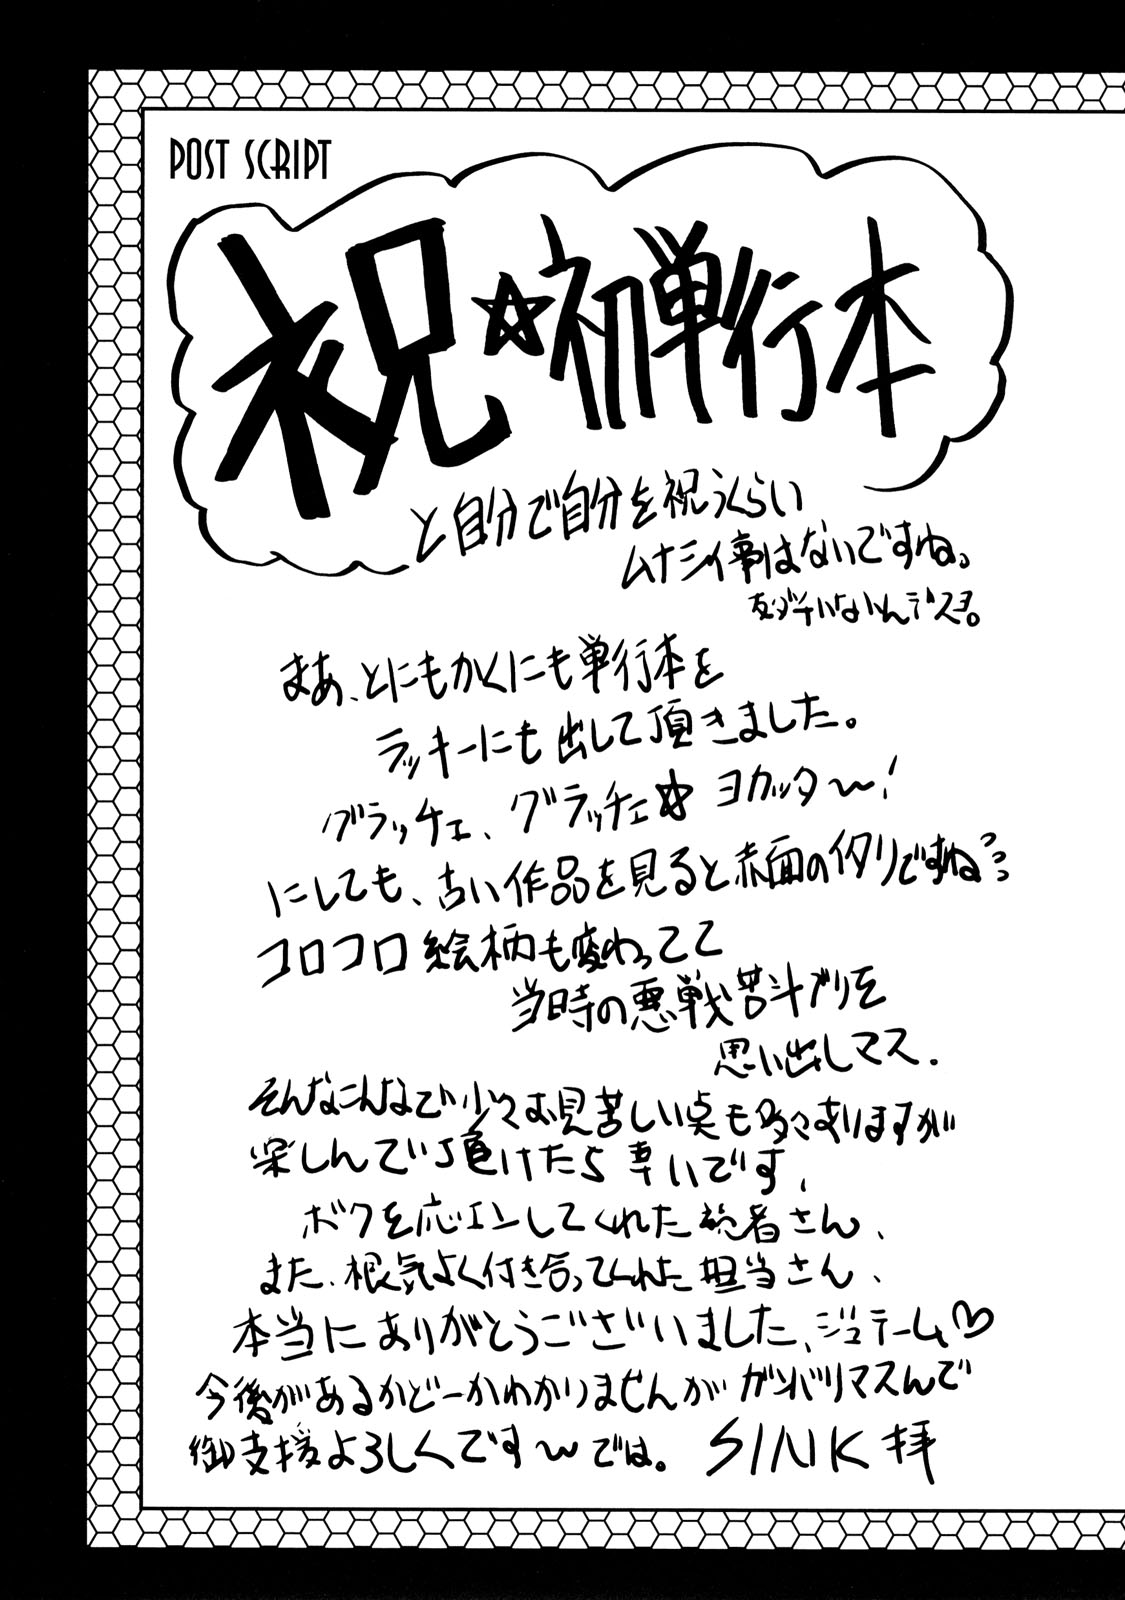 POST SCRIPT
祝☆初単行本
と自分で自分を祝うくらい
ムナシイ事はないですね。
友ダチいないんデスヨ。
まあ、とにもかくにも単行本を
ラッキーにも出して頂きました。
グラッチェ、グラッチェ☆ ヨカッタ〜!
にしても、古い作品を見ると赤面のイタリですねっっっ
コロコロ絵柄も変わってて
当時の悪戦苦斗ブリを
思い出しマス.
そんなこんなで少々お見苦しい点も多々ありますが
楽しんで頂けたら幸いです、
ボクを応エンしてくれた読者さん、
また、根気よく付き合ってくれた担当さん、
本当にありがとうございました、ジュテーム♡
今後があるかどーかわかりませんがガンバリマスんで
御支援よろしくです〜では。 SINK拝